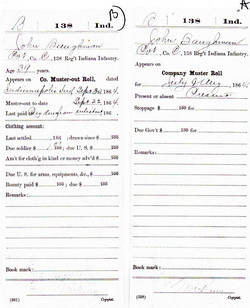 B
B 138 Ind.
John Baughman
Pvt, Co. C, 138 Reg't Indiana Infantry.
Age 24 years.
Appears on Co. Muster-out Roll, dated
Indianapolis Ind Sept 30, 1864
Muster-out to date Sept 22, 1864
Last paid 186
Clothing account:
Last settled 186 ; drawn since $ 100
Due soldier $ 100 ; due U. S. $ 100
Am't for cloth'g in kind or money adv'd $ 100
Due U. S. for arms, equipments, &c., $ 100
Bounty paid $ 100 ; due $ 100
Remarks:
Book mark:
Copyist.
A
B 138 Ind.
John Baughman
Pvt, Co. C, 138 Reg't Indiana Infantry.
Appears on
Company Muster Roll
for 186
Present or absent Present
Stoppage $ 100 for
Due Gov't $ 100 for
Remarks:
Book mark:
Copyist.